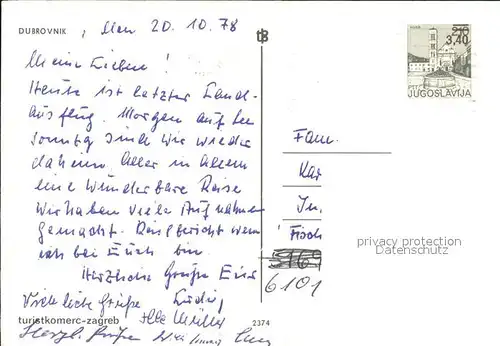 DUBROVNIK, den 20.10.78
Meine Lieben!
Heute ist letzter Land-
ausflug. Morgen auf See
Sonntag sind wir wieder
daheim. Alles in Allem
eine wunderbare Reise
wir haben viele Aufnahmen
gemacht. Reisebericht wenn
ich bei Euch bin
Herzliche Grüße Eure
Viele liebe Grüße
Herzl. Grüße
turistkomerc-zagreb
2374
tB
210
3,40
JUGOSLAVIJA
Fam.
Kar
In.
Fisch
privacy protection
Datenschutz
6101